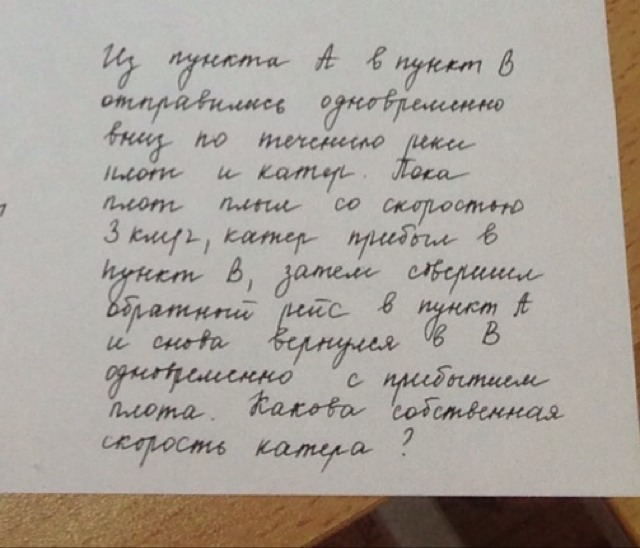 Из пункта А в пункт В
отправились одновременно
вниз по течению реки
плот и катер. Пока
плот плыл со скоростью
3 км/ч, катер прибыл в
пункт В, затем совершил
обратный рейс в пункт А
и снова вернулся в В
одновременно с прибытием
плота. Какова собственная
скорость катера?